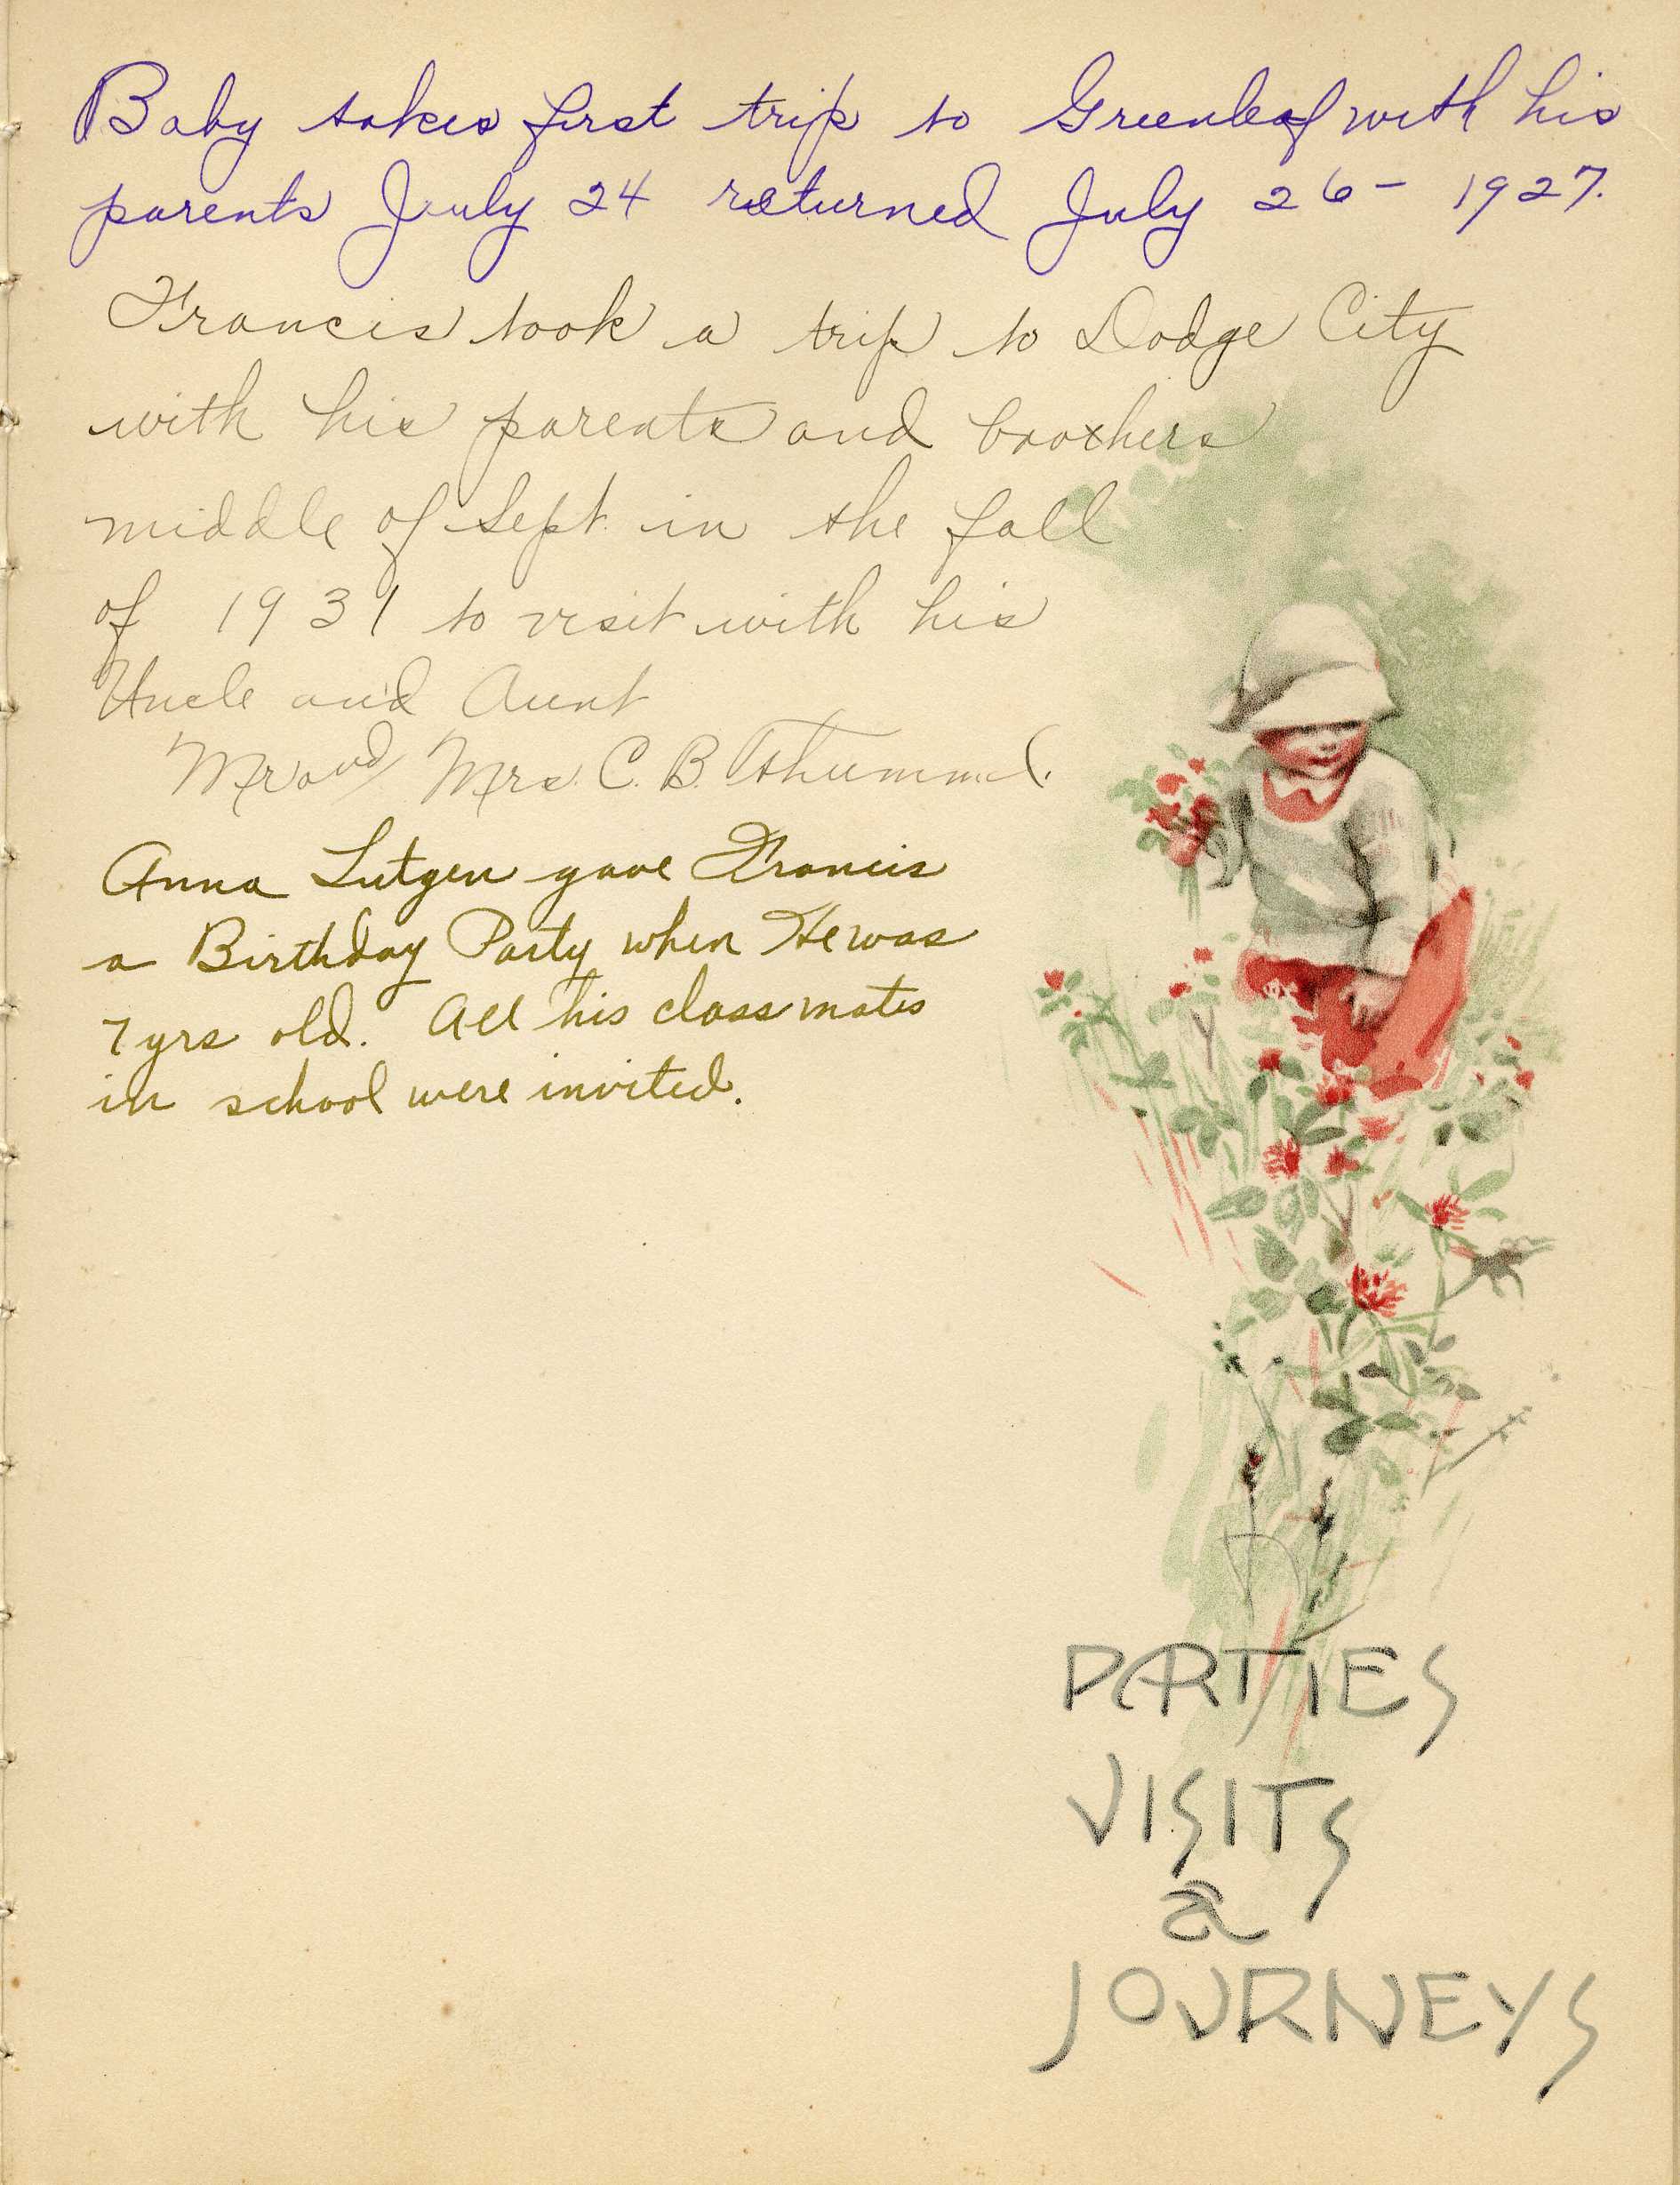 Baby takes first trip to Greenleaf with his
parents July 24 returned July 26 - 1927.
Francis took a trip to Dodge City
with his parents and brothers
middle of Sept. in the fall
of 1931 to visit with his
Uncle and Aunt
Mr and Mrs. C. B. Thummel.
Anna Lutgen gave Francis
a Birthday Party when He was
7 yrs old. All his classmates
in school were invited.
PARTIES
VISITS
&
JOURNEYS